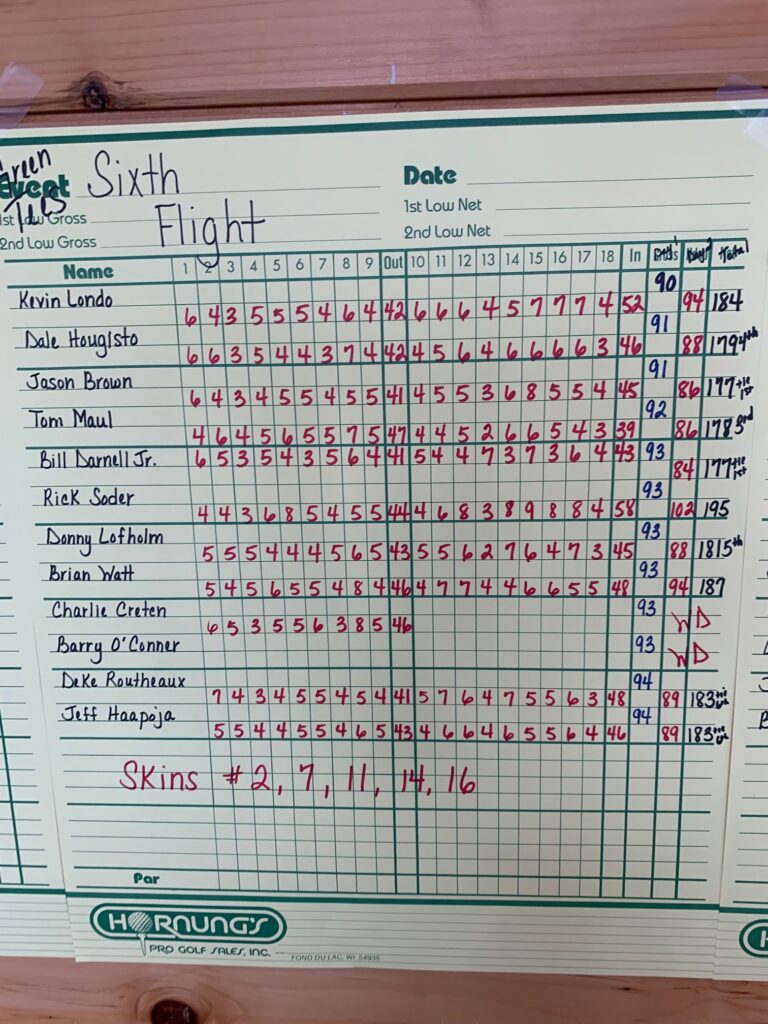 Green
Tees
Event Sixth
Flight
Date
1st Low Gross
1st Low Net
2nd Low Gross
2nd Low Net
Name 1 2 3 4 5 6 7 8 9 Out 10 11 12 13 14 15 16 17 18 In Total
Kevin Londo 6 4 3 5 5 5 4 6 4 42 6 6 6 4 5 7 7 7 4 52 90 94 184
Dale Hougisto 6 6 3 5 4 4 3 7 4 42 4 5 6 4 6 6 6 6 3 46 91 88 179 4th
Jason Brown 6 4 3 4 5 5 4 5 5 41 4 5 5 3 6 8 5 5 4 45 91 86 177 tie 1st
Tom Maul 4 6 4 5 6 5 5 7 5 47 4 4 5 2 6 6 5 4 3 39 92 86 178 3rd
Bill Darnell Jr. 6 5 3 5 4 3 5 6 4 41 5 4 4 7 3 7 3 6 4 43 93 84 177 tie 1st
Rick Soder 4 4 3 6 8 5 4 5 5 44 4 6 8 3 8 9 8 8 4 58 93 102 195
Donny Lofholm 5 5 5 4 4 4 5 6 5 43 5 5 6 2 7 6 4 7 3 45 93 88 181 5th
Brian Watt 5 4 5 6 5 5 4 8 4 46 4 7 7 4 4 6 6 5 5 48 93 94 187
Charlie Creten 6 5 3 5 5 6 3 8 5 46 93 WD
Barry O'Conner 93 WD
DeKe Routheaux 7 4 3 4 5 5 4 5 4 41 5 7 6 4 7 5 5 6 3 48 94 89 183 tie
Jeff Haapoja 5 5 4 4 5 5 4 6 5 43 4 6 6 4 6 5 5 6 4 46 94 89 183 tie
Skins #2, 7, 11, 14, 16
Par
HORNUNG'S
PRO GOLF SALES, INC.
FOND DU LAC, WI 54935